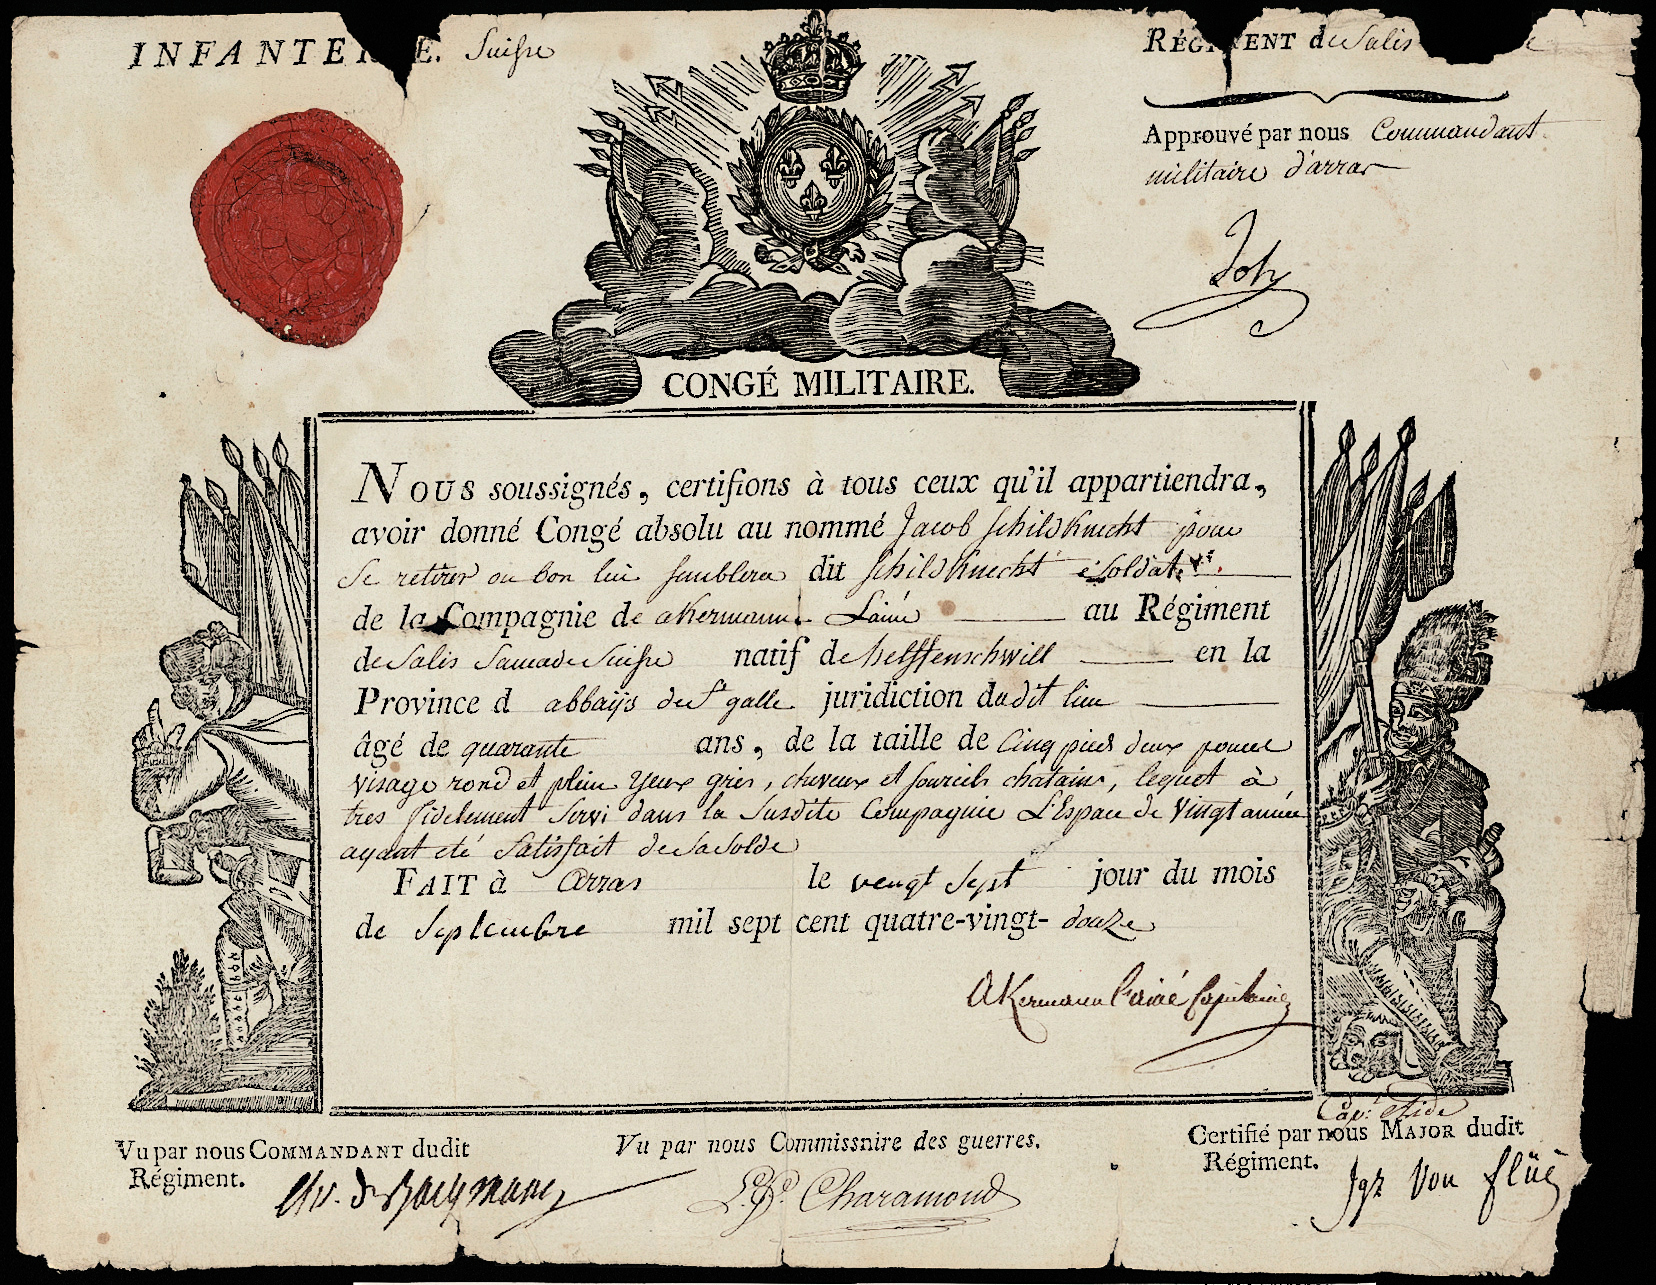 INFANTERIE. Suisse
RÉGIMENT de Salis
Approuvé par nous Commandant
militaire d'arras
Joly
CONGÉ MILITAIRE.
NOUS soussignés, certifions à tous ceux qu'il appartiendra,
avoir donné Congé absolu au nommé Jacob Schildknecht pour
Se retirer ou bon lui semblera dit Schildknecht Soldat
de la Compagnie de akermann L'ainé au Régiment
de Salis Samade Suisse natif de helffenschwill en la
Province d abbaÿs de St galle juridiction dudit lieu
âgé de quarante ans, de la taille de Cinq pied deux pouces
visage rond et plein yeux gris, cheveux et sourcils chatains, lequel à
tres fidelement Servi dans la Susdite Compagnie L'Espace de Vingt année
ayant eté Satisfait de Sa Solde
FAIT à Arras le vengt Sept jour du mois
de Septembre mil sept cent quatre-vingt-douze
AKermann l'ainé Capitaine
Vu par nous COMMANDANT dudit
Régiment.
Vu par nous Commissnire des guerres.
Charamond
Cap: Aide
Certifié par nous MAJOR dudit
Régiment.
Jgz Von flüe